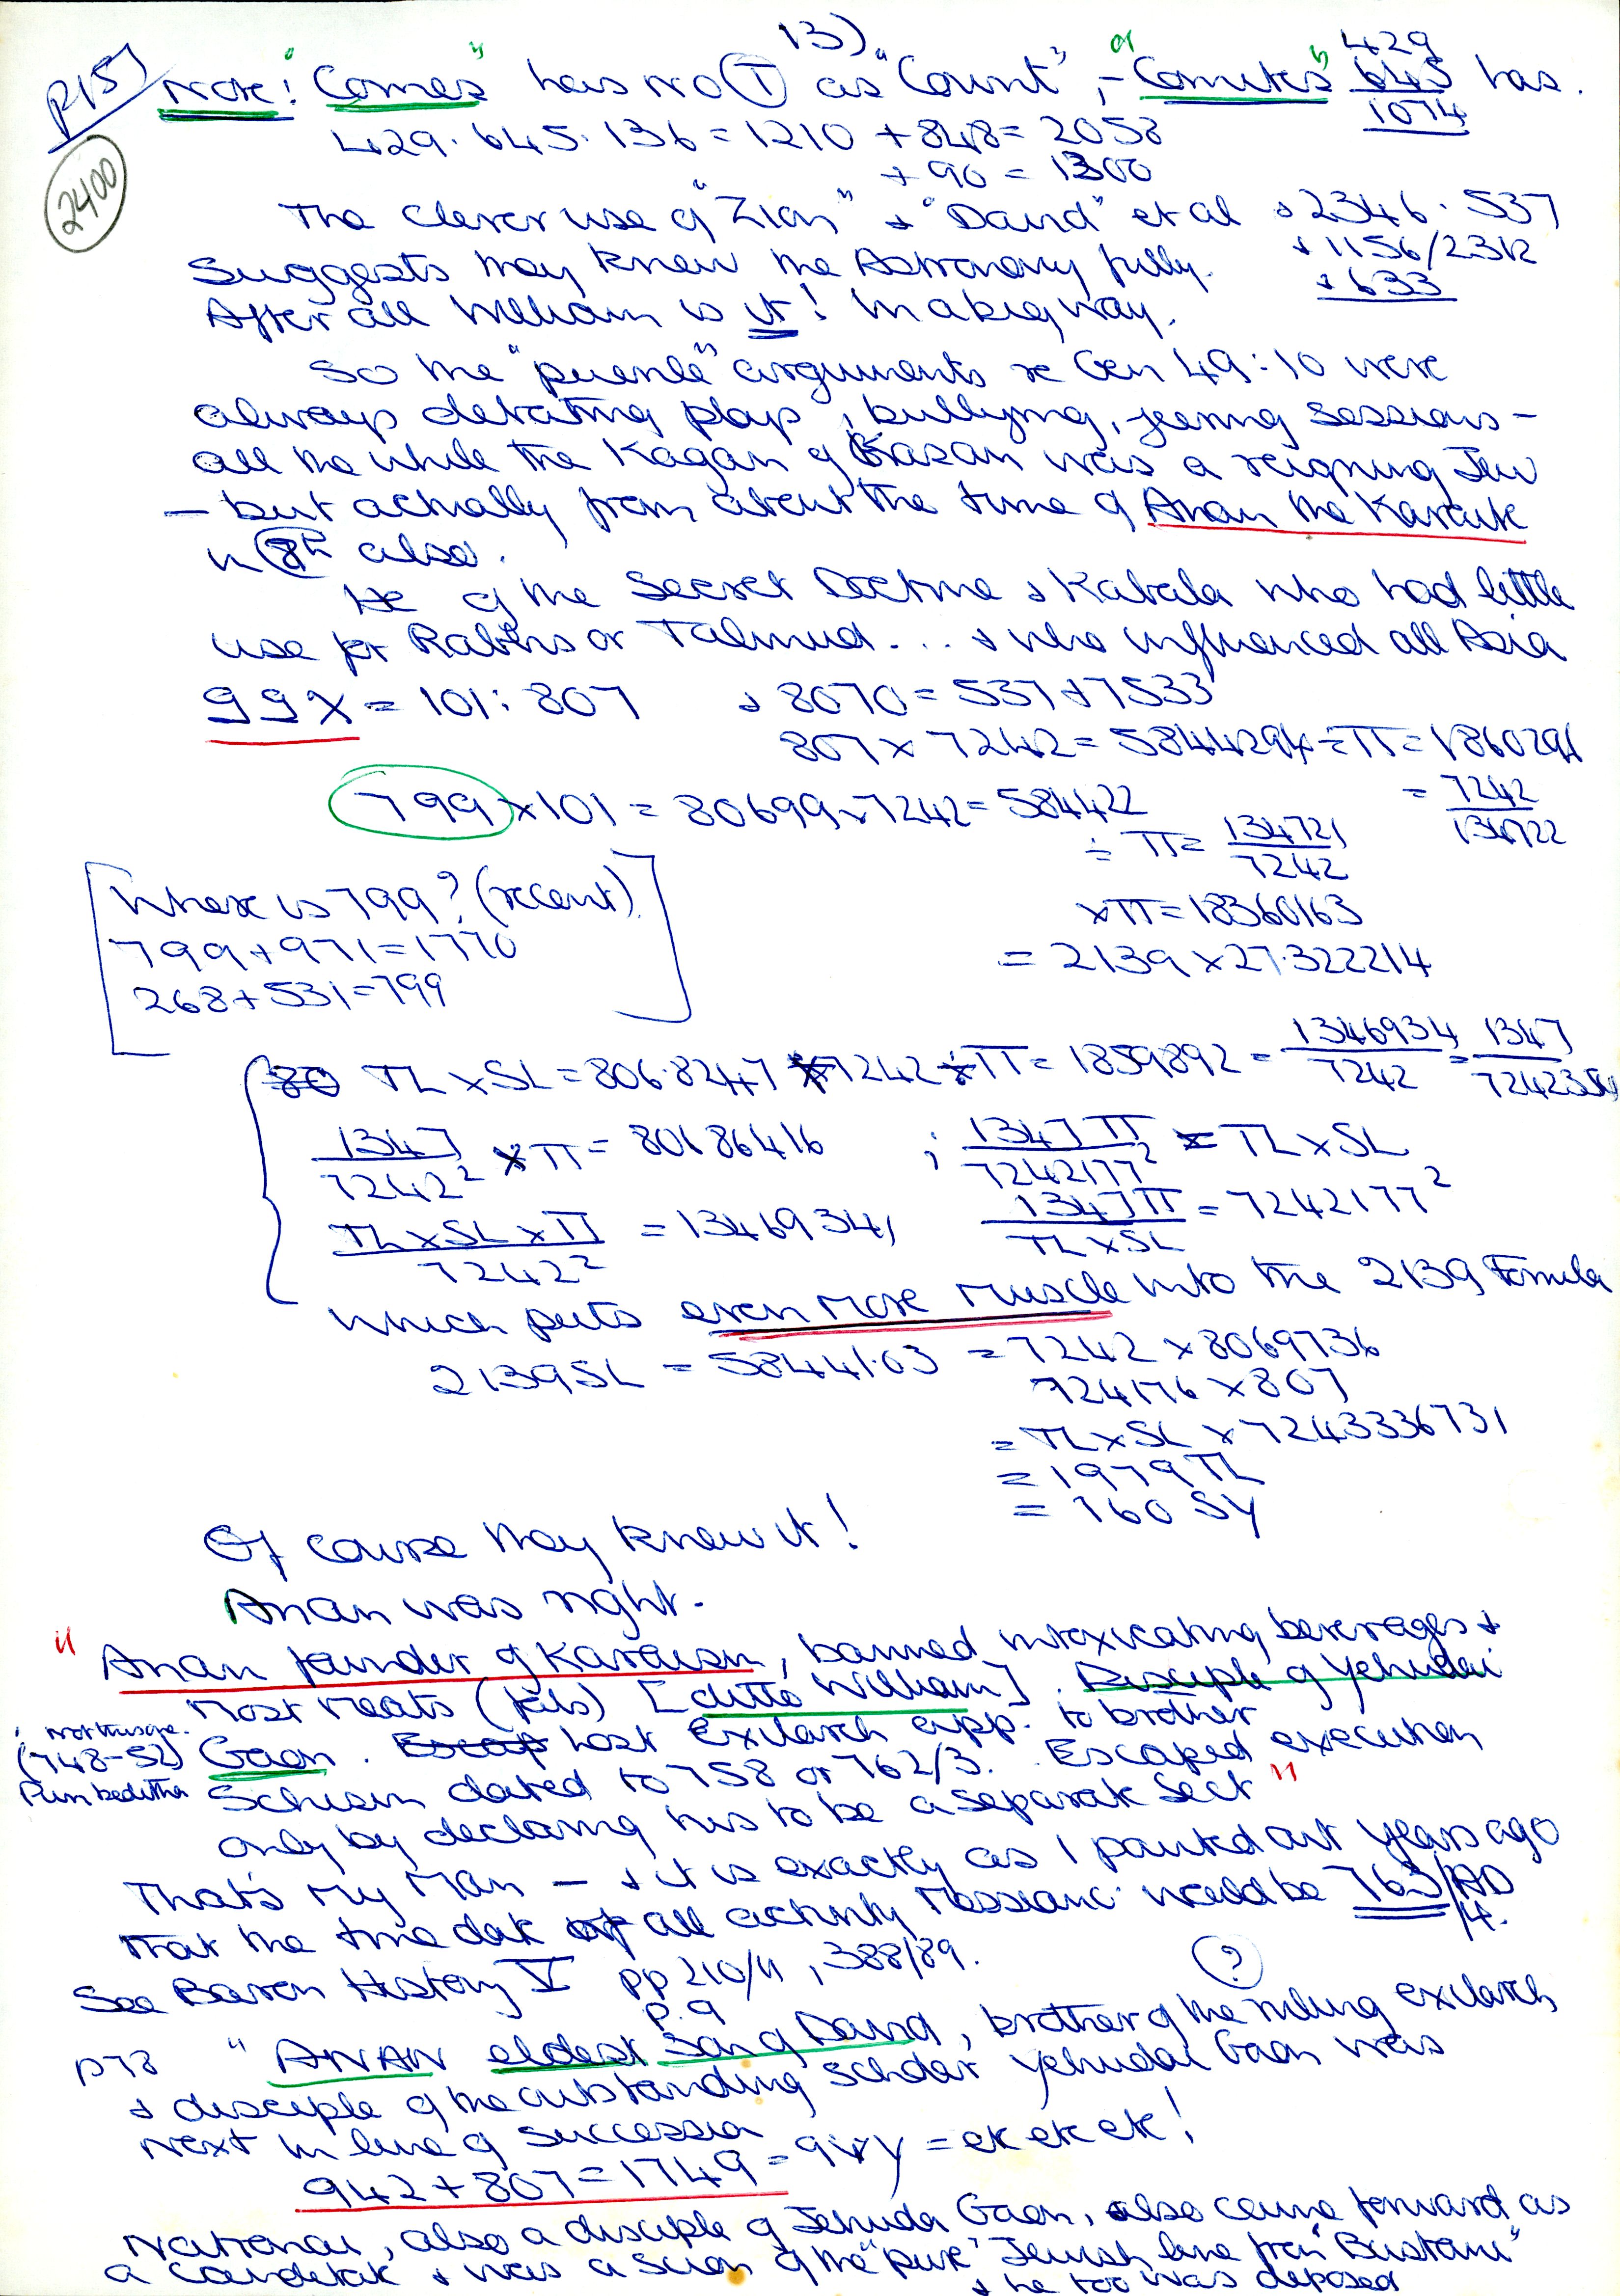 13)
P15
2400
Note: "Comes" has no (T) as "Count", - "Comites" 429 645 has.
1074
429. 645. 136 = 1210 + 848 = 2058
+ 90 = 1300
The clever use of "Zion" & "David" et al & 2346. 537
suggests they knew the Astronomy fully. & 1156/2312
& 633
After all William is it! In a big way.
So the "puerile" arguments re Gen 49:10 were
always debating plays, bullying, jeering sessions -
all the while the Kagan of Kasan was a reigning Jew
- but actually from about the time of Anan the Karaite
in 8th also.
He of the Secret Doctrine & Kabala who had little
use for Rabbis or Talmud... & who influenced all Asia
99X = 101: 807 & 8070 = 537 + 7533
807 x 7242 = 5844294 ÷ π = 1860291
= 7242/134722
799 x 101 = 80699 x 7242 = 584422
÷ π = 134721/7242
x π = 18360163
= 2139 x 27.322214
[Where is 799? (recent)
799 + 971 = 1770
268 + 531 = 799]
TL x SL = 806.8247 x 7242 ÷ π = 1859892 = 1346934/7242 = 1347/
1347/7242² x π = 80686416 ; 1347π/7242177² = TL x SL
TL x SL x π/7242² = 13469341, 1347π/TL x SL = 7242177²
which puts even more muscle into the 2139 Formula
2139 SL = 58441.03 = 7242 x 8069736
724176 x 807
= TL x SL x 7243336731
= 1979 TL
= 160 SY
Of course they knew it!
Anan was right.
"Anan founder of Karaism, banned intoxicating beverages &
most meats (fish) [ditto William]. Disciple of Yehudai
(748-52) Gaon. Lost Exilarch app. to brother
Pumbeditha Schism dated to 758 or 762/3. Escaped execution
only by declaring his to be a separate sect"
That's my man - & it is exactly as I pointed out years ago
that the time date of all activity Messianic would be 763/4 AD.
See Baron History V pp 210/11, 388/89.
p. 9 (?)
p78 "ANAN eldest son of David, brother of the ruling exilarch
& disciple of the outstanding scholar Yehudai Gaon was
next in line of succession
942 + 807 = 1749 = = ek ek ek!
Natronai, also a disciple of Jehudai Gaon, also came forward as
a candidate & was a scion of the "pure" Jewish line from "Bustani"
& he too was deposed